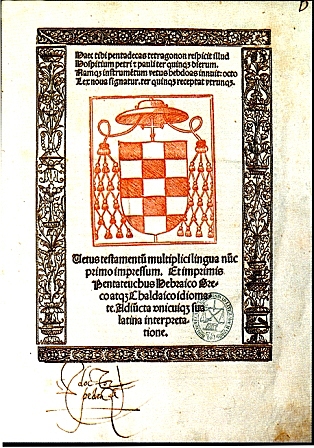 Haec tibi pentadecas tetragonon respicit illud
Hospitium petri ⁊ pauli ter quinqꝫ dierum.
Namqꝫ instrumētum vetus hebdoas innuit: octo
Lex noua signatur. ter quinqꝫ receptat vtrunqꝫ.
Uetus testamentū multiplici lingua nūc
primo impressum. Et imprimis
Pentateuchus Hebraico Gre-
coatqꝫ Chaldaico idioma-
te. Adiūcta vnicuiqꝫ sua
latina interpreta-
tione.